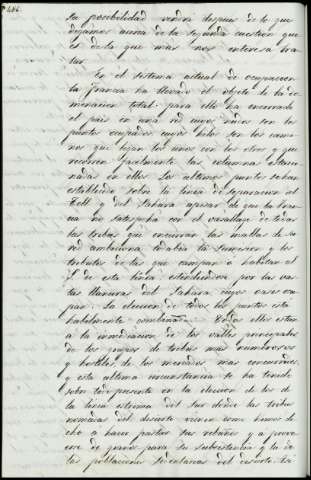 486.
su posibilidad vendra despues de lo que
digamos acerca de la segunda cuestion que
es de lo que mas nos interesa tra-
tar.
En el sistema actual de ocupacion
la Francia ha llevado el objeto de la do-
minacion total: para ello ha encerrado
el pais en una red cuyos nudos son los
puntos ocupados cuyos hilos son los cami-
nos que ligan los unos con los otros y que
recorren igualmente las columnas
en ellos. Los ultimos puntos se han
establecido sobre la linea de separacion del
Tell y del Sahara apesar de que la Fran-
cia no satisfecha con el vasallage de todas
las tribus que encierran las mallas de su
red ambiciona todabia la sumision y los
tributos de las que campan o habitan al
S. de esta linea estendiendose por las vas-
tas llanuras del Sahara cuyos oasis ocu-
pan. La eleccion de todos los puntos está
habilmente combinada. Todos ellos estan
a la inmediacion de los valles principales
de los grupos de tribus mas numerosos
y hostiles, de los mercados mas concurridos
y esta ultima circunstancia se ha tenido
sobre todo presente en la eleccion de los de
la linea estrema del Sur donde las tribus
nomadas del desierto vienen como hemos di-
cho a hacer pastar sus rebaños y a provee-
rse de granos para su subsistencia y la de
las poblaciones sedentarias del desierto. Asi